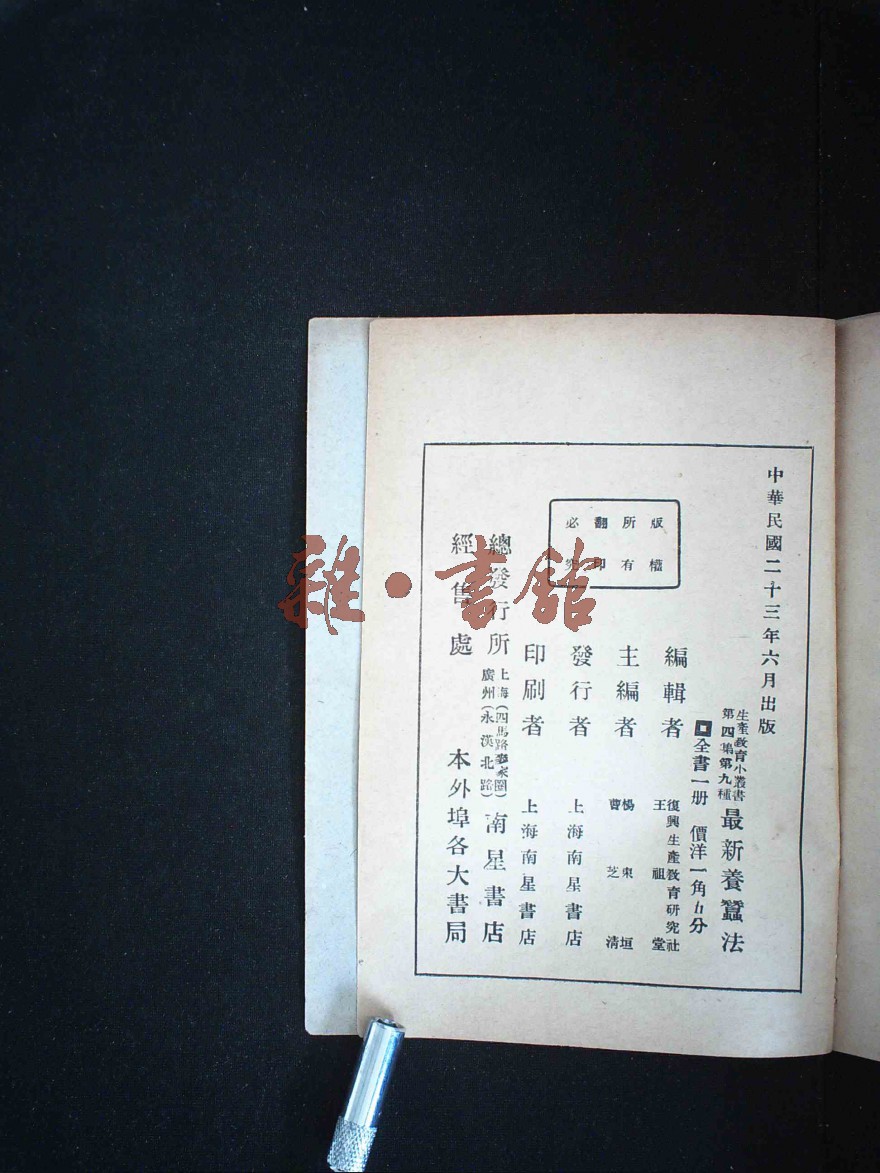 中華民國二十三年六月出版
生產教育小叢書
第四輯第九種
最新養蠶法
全書一册 價洋一角 分
編輯者
復興生產教育研究社
王祖堂
主編者
楊東垣
曹芝清
發行者 上海南星書店
印刷者 上海南星書店
總發行所
上海(四馬路 家圈)
廣州(永漢北路)
南星書店
經售處 本外埠各大書局
版權
所有
翻印
必究
雜·書館